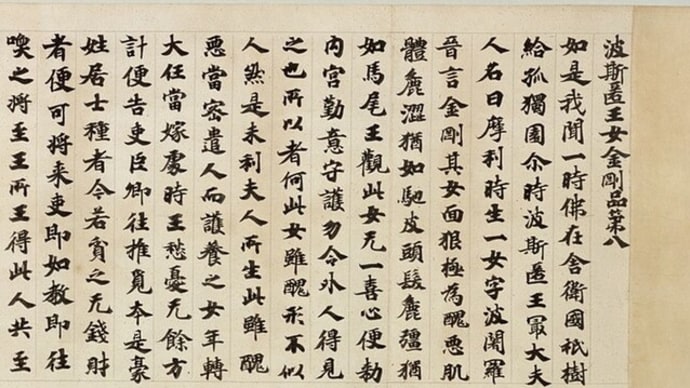 波斯匿王女金剛品第八
如是我聞一時佛在舍衛國祇樹
給孤獨園尒時波斯匿王冣大夫
人名曰摩利時生一女字波闍羅
晉言金剛其女面狠極為醜惡肌
體麁澀猶如馳皮頭髮麁彊猶
如馬尾王觀此女无一喜心便勑
内宮勤意守護勿令外人得見
之也所以者何此女雖醜形不似
人然是末利夫人所生此雖醜
惡當密遣人而護養之女年轉
大任當嫁處時王愁憂无餘方
計便告吏臣卿往推覓本是豪
姓居士種者今若貧乏无錢財
者便可将来吏即如教即往
喚之将至王所王得此人共至